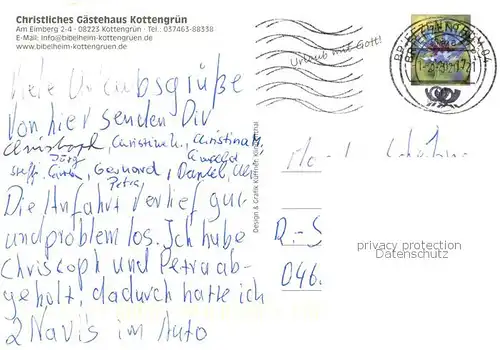 Christliches Gästehaus Kottengrün
Am Eimberg 2-4 · 08223 Kottengrün · Tel.: 037463-88338
E-Mail: info@bibelheim-kottengruen.de
www.bibelheim-kottengruen.de
Urlaub mit Gott!
BRIEFZENTRUM 04
Viele Urlaubsgrüße
von hier senden Dir
Christoph, Christine U., Christina M.
Jörg
Steff. Gerhard, Daniel,
Petra
Die Anfahrt verlief gut
und problemlos. Ich habe
Christoph und Petra ab-
geholt, dadurch hatte ich
2 Navis im Auto
Design & Grafik
R.-S
046
privacy protection
Datenschutz